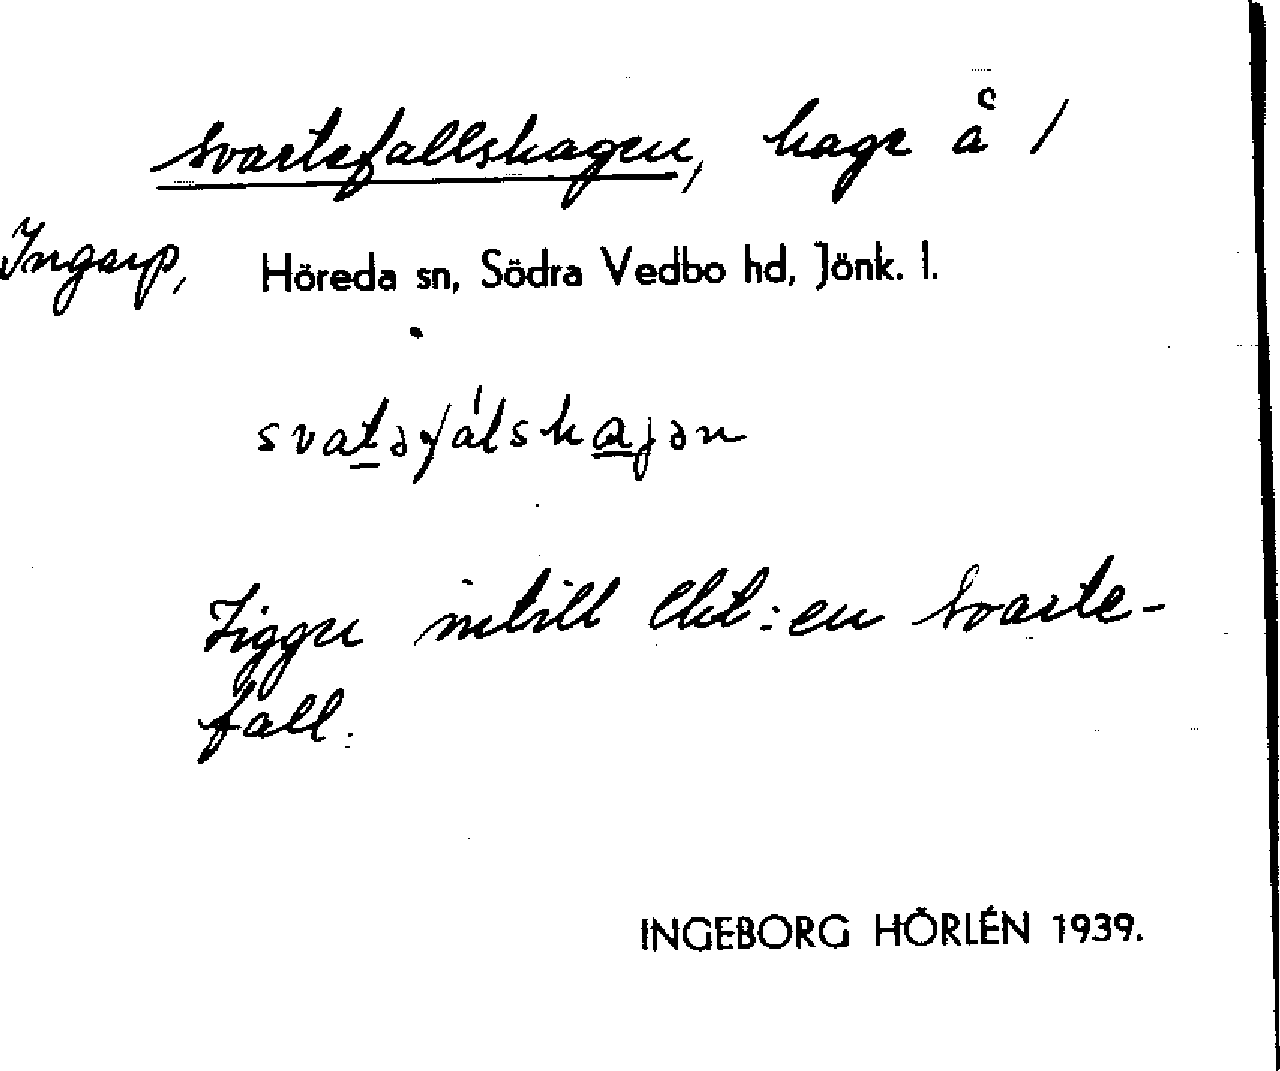 Svartefallshagen, hage å /
Ingarp, Höreda sn, Södra Vedbo hd, Jönk. l.
svatəfálshajən
Ligger intill lht:en Svarte-
fall.
INGEBORG HÖRLÉN 1939.